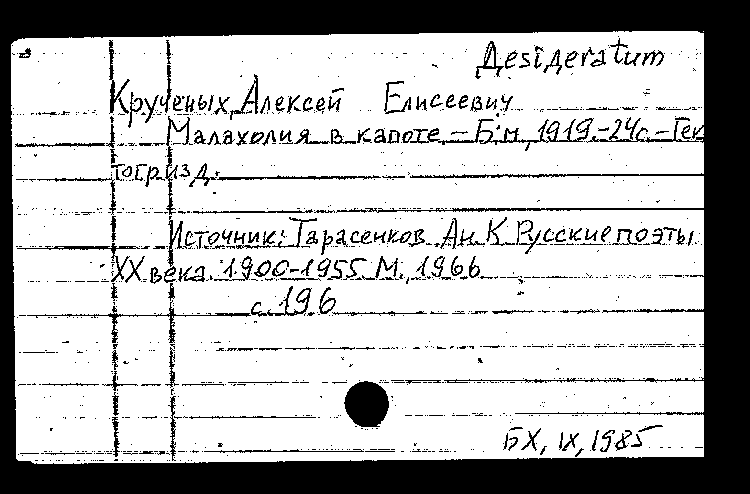 Дesiдeratum
Крученых, Алексей Елисеевич
Малахолия в капоте. – Б.м., 1919. – 24с. – Гек
тогр.изд.
Источник: Тарасенков Ан. К Русские поэты
XX века. 1900-1955 М., 1966
с. 196
БХ, IX, 1985